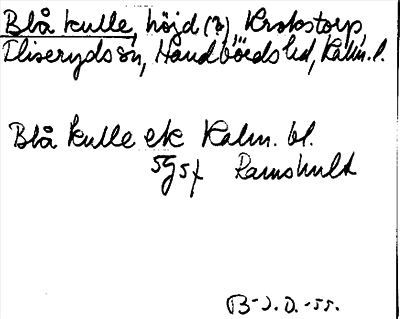 Blå kulle, höjd (?), Krokstorp,
Fliseryds sn, Handbörds hd, Kalm. l.
Blå kulle ek Kalm. bl.
5G5f Ramshult
B-J.D.-55.